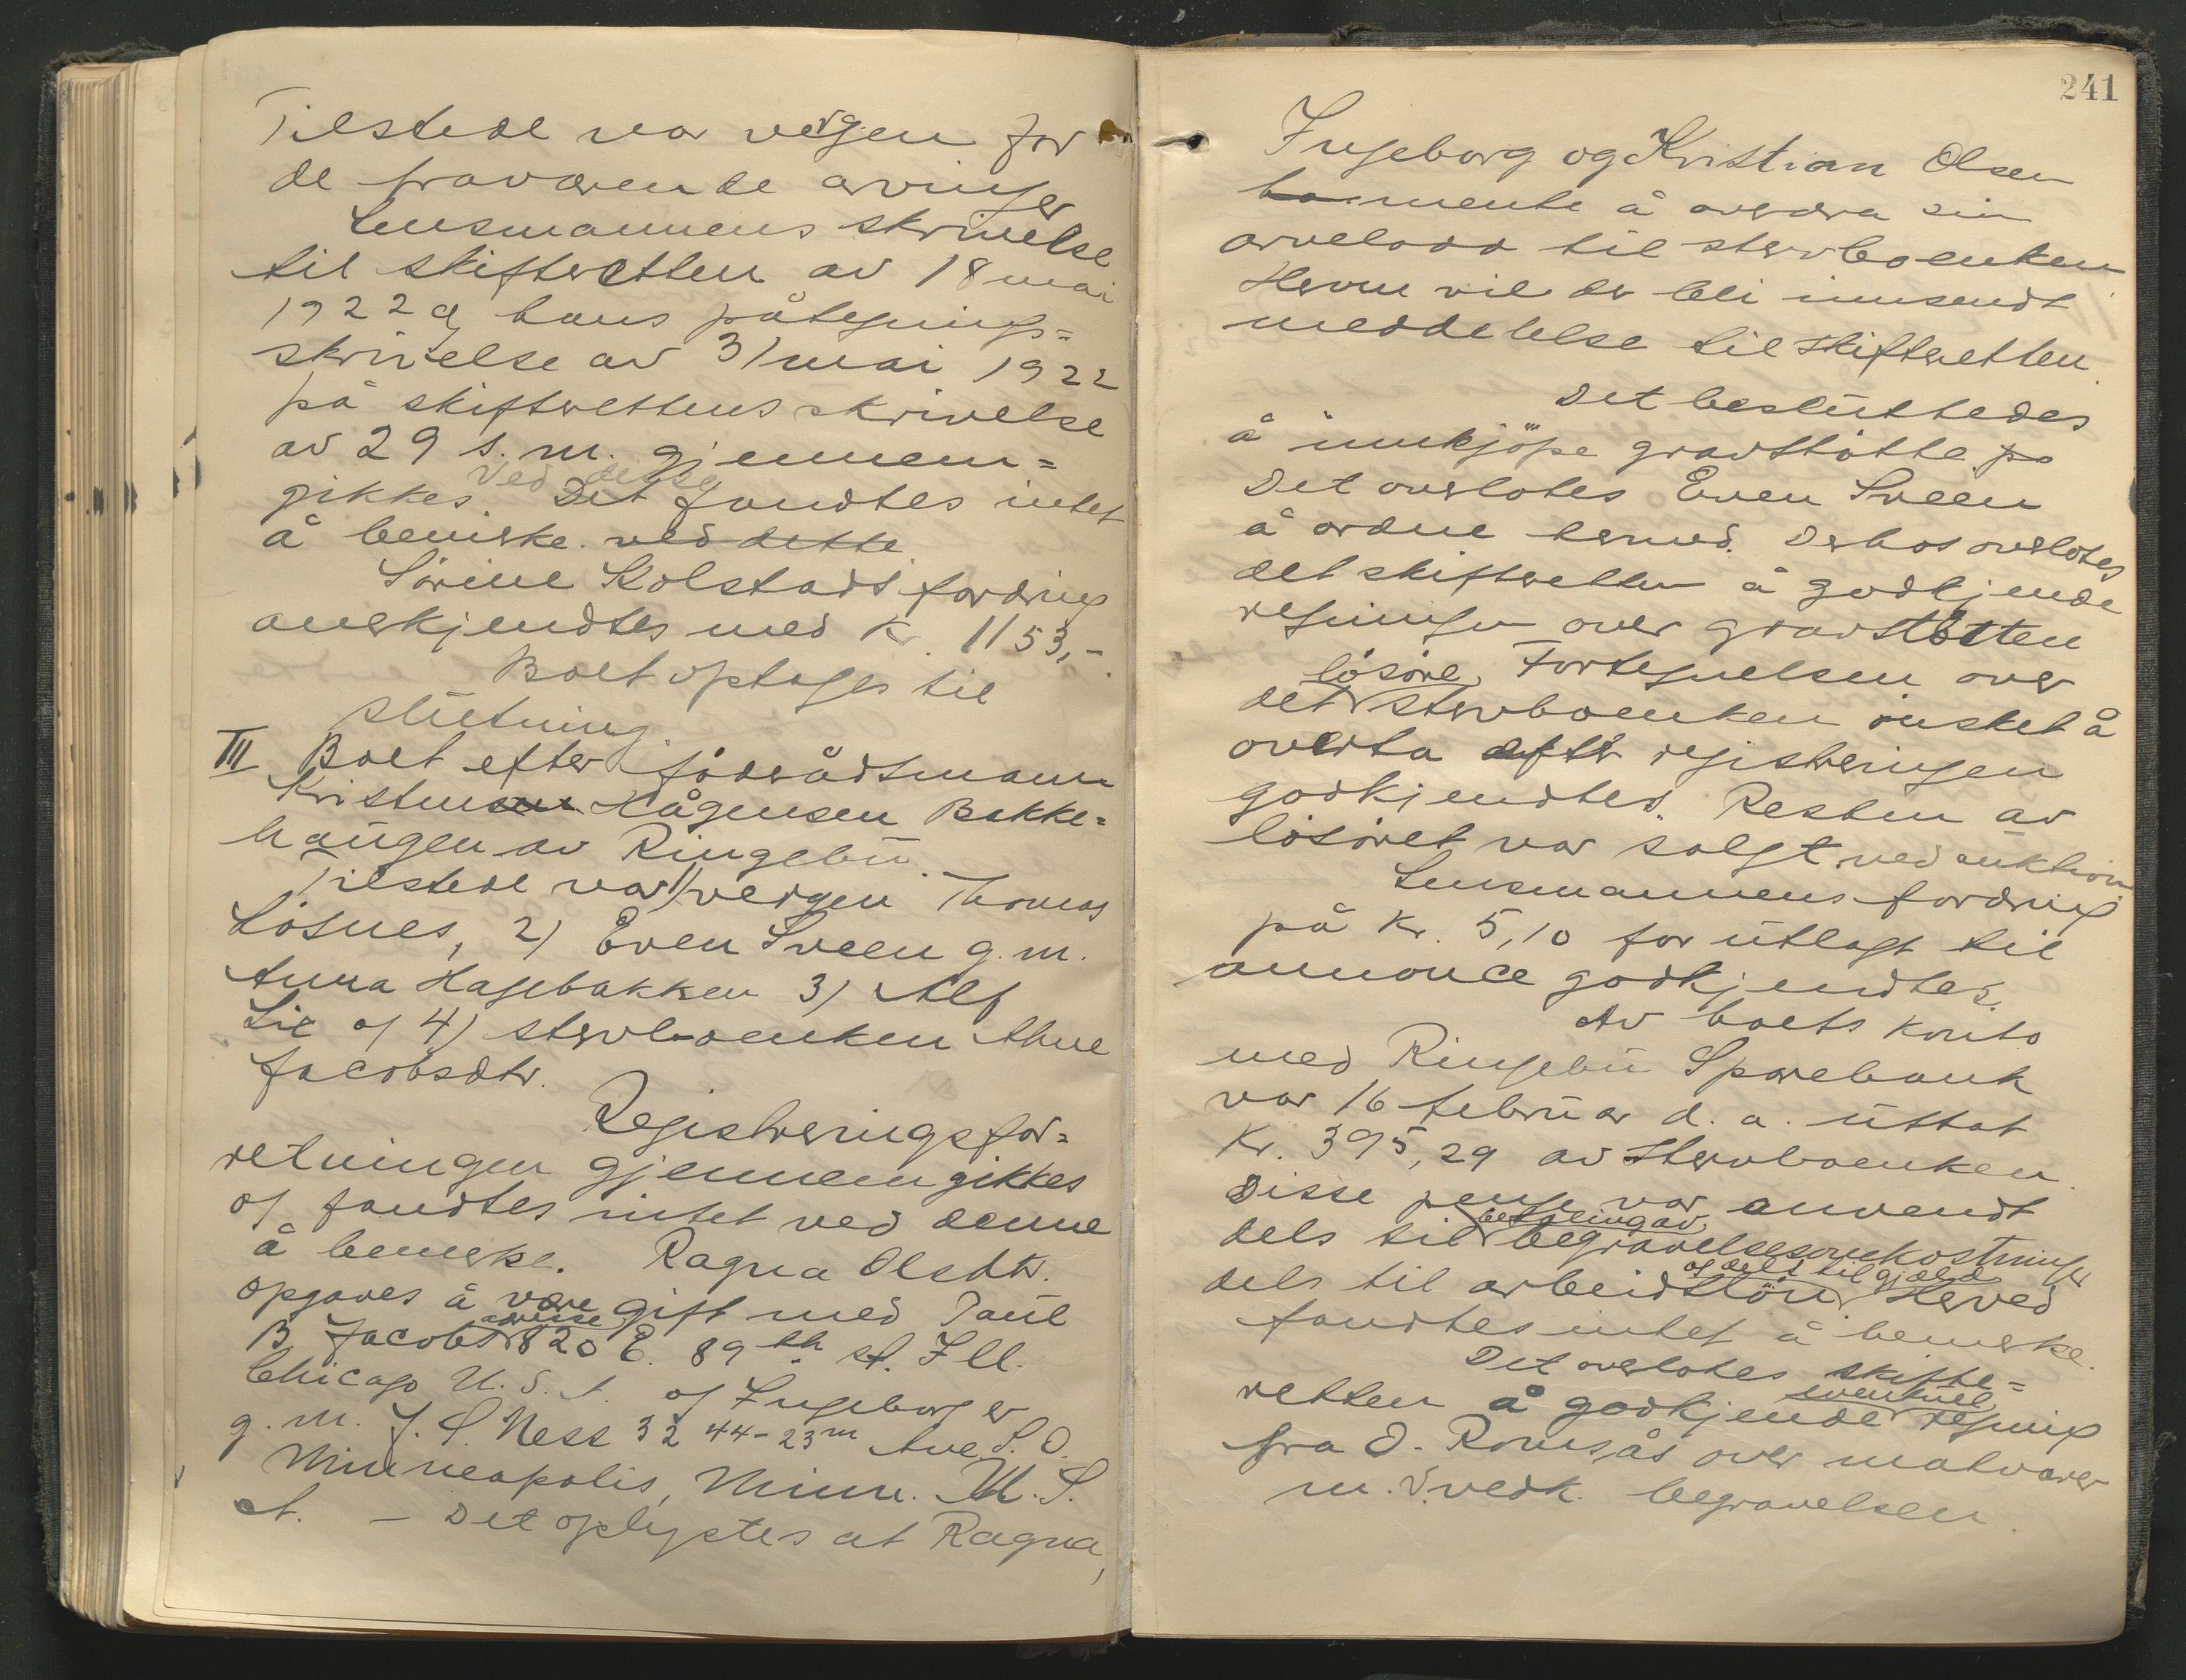 Tilstede var vergen for
de fraværende arvinger
Lensmannens skrivelse
til skifteretten av 18 mai
1922 og hans påtegnings=
skrivelse av 31 mai 1922
på skifterettens skrivelse
av 29 s. m. gjennem=
gikkes. Ved disse Det fandtes intet
å bemerke. ved dette
Sørine Kolstads fordring
anerkjendtes med Kr. 1153,-
Boet optages til
slutning.
III Boet efter föderådsmann
Kristen Hågensen Bakke=
haugen av Ringebu.
Tilstede var 1) vergen Thomas
Lösnes, 2) Even Sveen g. m.
Anna Hagebakken 3) Alf
Lie og 4) sterboenken Ane
Jacobsdtr.
Registreringsfor=
retningen gjennemgikkes
og fandtes intet ved denne
å bemerke. Ragna Olsdtr.
opgaves å være gift med Paul
B Jacobs adresse 820 E. 89th st. Ill.
Chicago U. S. A. og Ingeborg er
g. m. J. S. Ness 3244-23m Ave S. O.
Minneapolis, Minn. U. S.
A. - Det oplystes at Ragna,
241
Ingeborg og Kristian Olsen
mente å overdra sin
arvelodd til sterboenken.
Herom vil der bli innsendt
meddelelse til skifteretten.
Det besluttedes
å innkjöpe gravstötte
Det overlotes Even Sveen
å ordne hermed. Derhos overlotes
det skifteretten å godkjende
regningen over gravstötten
Fortegnelsen over
det lösöre sterboenken önsket å
overta efter registreringen
godkjendtes. Resten av
lösöret var solgt ved auktion
Lensmannens fordring
på Kr. 5,10 for utlagt til
annonce godkjendtes.
Av boets konto
med Ringebu Sparebank
var 16 februar d. a. uttat
Kr. 395,29 av sterboenken.
Disse penge var anvendt
dels til betaling av begravelsesomkostninger
dels til arbeidslön og dels til gjæld Herved
fandtes intet å bemerke.
Det overlotes skifte=
retten å godkjende eventuel regning
fra O. Romsås over matvarer
m. v. vedk. begravelsen.